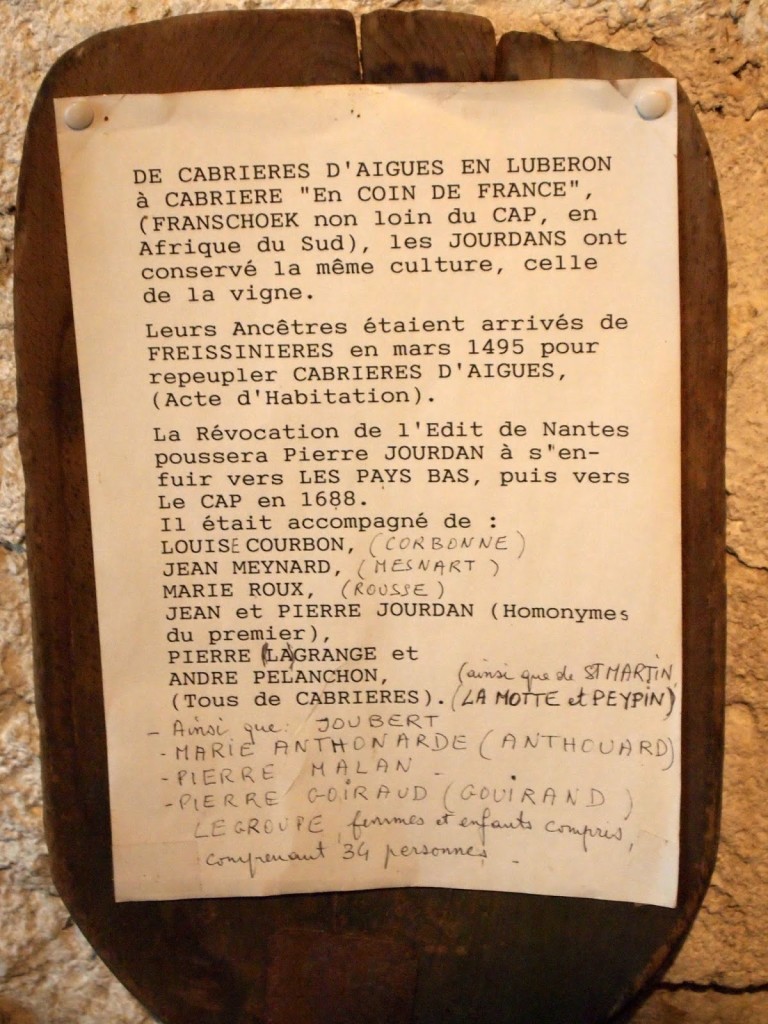 DE CABRIERES D'AIGUES EN LUBERON
à CABRIERE "En COIN DE FRANCE",
(FRANSCHOEK non loin du CAP, en
Afrique du Sud), les JOURDANS ont
conservé la même culture, celle
de la vigne.
Leurs Ancêtres étaient arrivés de
FREISSINIERES en mars 1495 pour
repeupler CABRIERES D'AIGUES,
(Acte d'Habitation).
La Révocation de l'Edit de Nantes
poussera Pierre JOURDAN à s"en-
fuir vers LES PAYS BAS, puis vers
Le CAP en 1688.
Il était accompagné de :
LOUISE COURBON, (CORBONNE)
JEAN MEYNARD, (MESNART)
MARIE ROUX, (ROUSSE)
JEAN et PIERRE JOURDAN (Homonymes
du premier),
PIERRE (LA)GRANGE et
ANDRE PELANCHON, (ainsi que de ST MARTIN
(Tous de CABRIERES). (LA MOTTE et PEYPIN)
- Ainsi que: JOUBERT
- MARIE ANTHONARDE (ANTHOUARD)
- PIERRE MALAN -
- PIERRE GOIRAUD (GOUIRAND)
LE GROUPE, femmes et enfants compris,
comprenant 34 personnes -